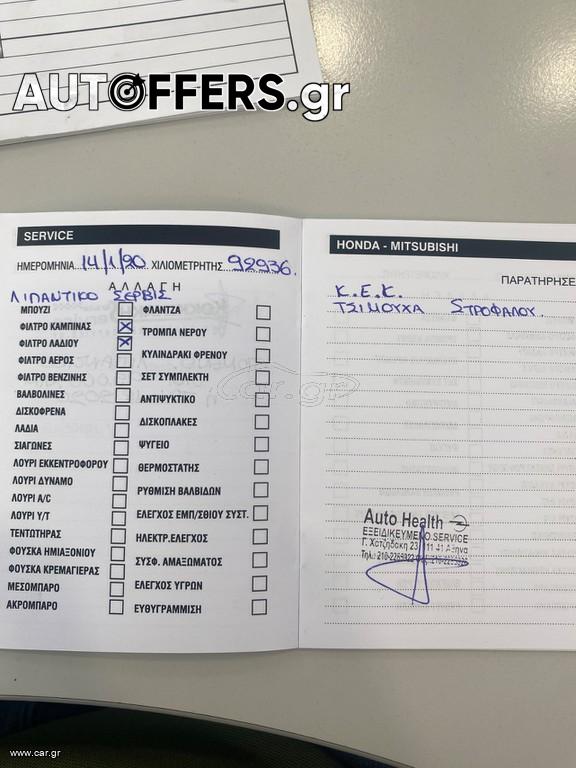 AUTOFFERS.gr
SERVICE
ΗΜΕΡΟΜΗΝΙΑ 14/1/20 ΧΙΛΙΟΜΕΤΡΗΤΗΣ 92936.
ΑΛΛΑΓΗ
ΛΙΠΑΝΤΙΚΟ ΣΕΡΒΙΣ
ΜΠΟΥΖΙ
ΦΙΛΤΡΟ ΚΑΜΠΙΝΑΣ
ΦΙΛΤΡΟ ΛΑΔΙΟΥ
ΦΙΛΤΡΟ ΑΕΡΟΣ
ΦΙΛΤΡΟ ΒΕΝΖΙΝΗΣ
ΒΑΛΒΟΛΙΝΕΣ
ΔΙΣΚΟΦΡΕΝΑ
ΛΑΔΙΑ
ΣΙΑΓΩΝΕΣ
ΛΟΥΡΙ ΕΚΚΕΝΤΡΟΦΟΡΟΥ
ΛΟΥΡΙ ΔΥΝΑΜΟ
ΛΟΥΡΙ A/C
ΛΟΥΡΙ Υ/Τ
ΤΕΝΤΩΤΗΡΑΣ
ΦΟΥΣΚΑ ΗΜΙΑΞΟΝΙΟΥ
ΦΟΥΣΚΑ ΚΡΕΜΑΓΙΕΡΑΣ
ΜΕΣΟΜΠΑΡΟ
ΑΚΡΟΜΠΑΡΟ
ΦΛΑΝΤΖΑ
ΤΡΟΜΠΑ ΝΕΡΟΥ
ΚΥΛΙΝΔΡΑΚΙ ΦΡΕΝΟΥ
ΣΕΤ ΣΥΜΠΛΕΚΤΗ
ΑΝΤΙΨΥΚΤΙΚΟ
ΔΙΣΚΟΠΛΑΚΕΣ
ΨΥΓΕΙΟ
ΘΕΡΜΟΣΤΑΤΗΣ
ΡΥΘΜΙΣΗ ΒΑΛΒΙΔΩΝ
ΕΛΕΓΧΟΣ ΕΜΠ/ΣΘΙΟΥ ΣΥΣΤ.
ΗΛΕΚΤΡ.ΕΛΕΓΧΟΣ
ΣΥΣΦ. ΑΜΑΞΩΜΑΤΟΣ
ΕΛΕΓΧΟΣ ΥΓΡΩΝ
ΕΥΘΥΓΡΑΜΜΙΣΗ
HONDA - MITSUBISHI
ΠΑΡΑΤΗΡΗΣΕ
Κ.Ε.Κ.
ΤΣΙΜΟΥΧΑ ΣΤΡΟΦΑΛΟΥ.
Auto Health
ΕΞΕΙΔΙΚΕΥΜΕΝΟ SERVICE
Γ. Χατζηδάκη 23, 111 41 Αθήνα
car.gr
www.car.gr